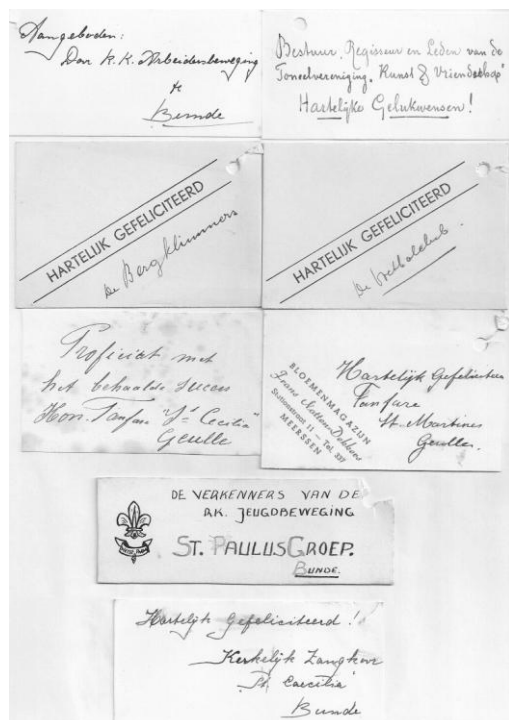 Aangeboden:
Door R.K. Arbeidersbeweging
te
Bunde
Bestuur, Regisseur en Leden van de
Toneelvereniging "Kunst & Vriendschap"
Hartelijke Gelukwensen!
HARTELIJK GEFELICITEERD
De Bergklimmers
HARTELIJK GEFELICITEERD
De Voetbalclub.
Proficiat met
het behaalde succes
Kon. Fanfare "St Cecilia"
Geulle
BLOEMENMAGAZIJN
Frans
Stationstraat 11 - Tel. 337
MEERSSEN
Hartelijk Gefeliciteerd
Fanfare
St. Martinus
Geulle.
DE VERKENNERS VAN DE
R.K. JEUGDBEWEGING
ST. PAULUSGROEP.
BUNDE.
Hartelijk Gefeliciteerd!
Kerkelijk Zangkoor
"St. Caecilia"
Bunde